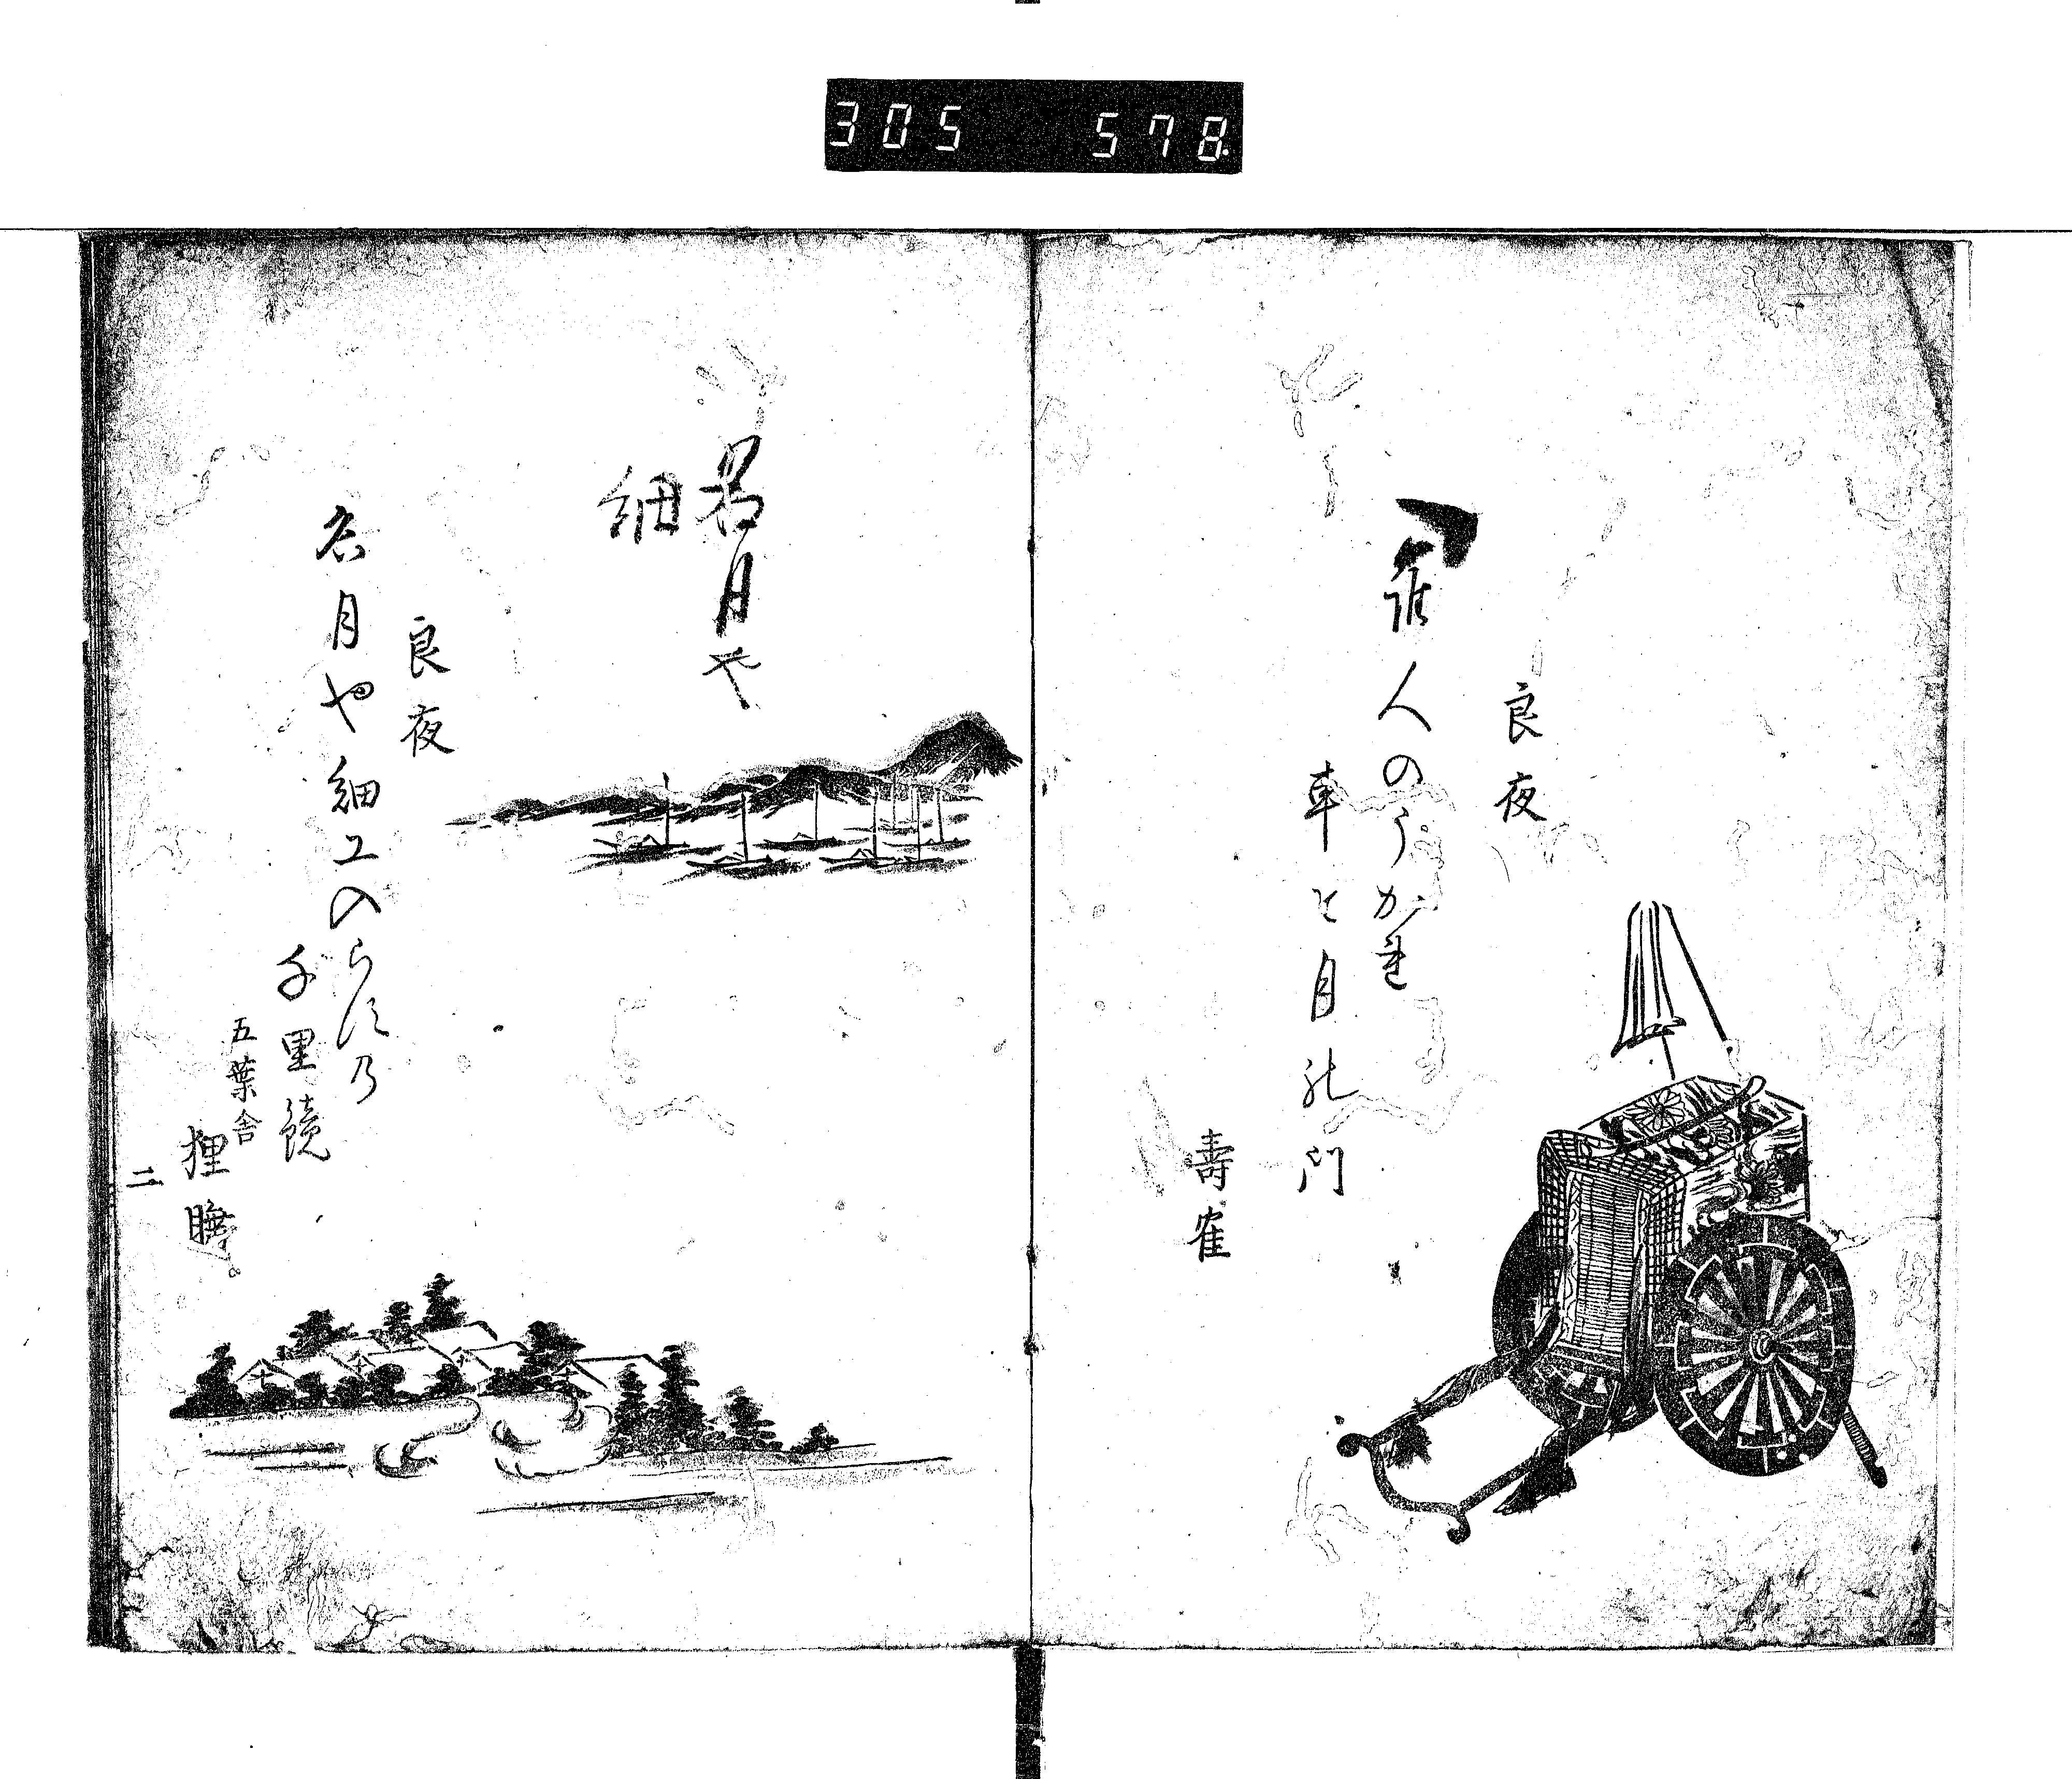 305 578
良夜
誰人のうかれ
車そ月の門
壽雀
名月や
細
良夜
名月や細工のらぬ乃
千里鏡
五葉舎
狸瞻
二